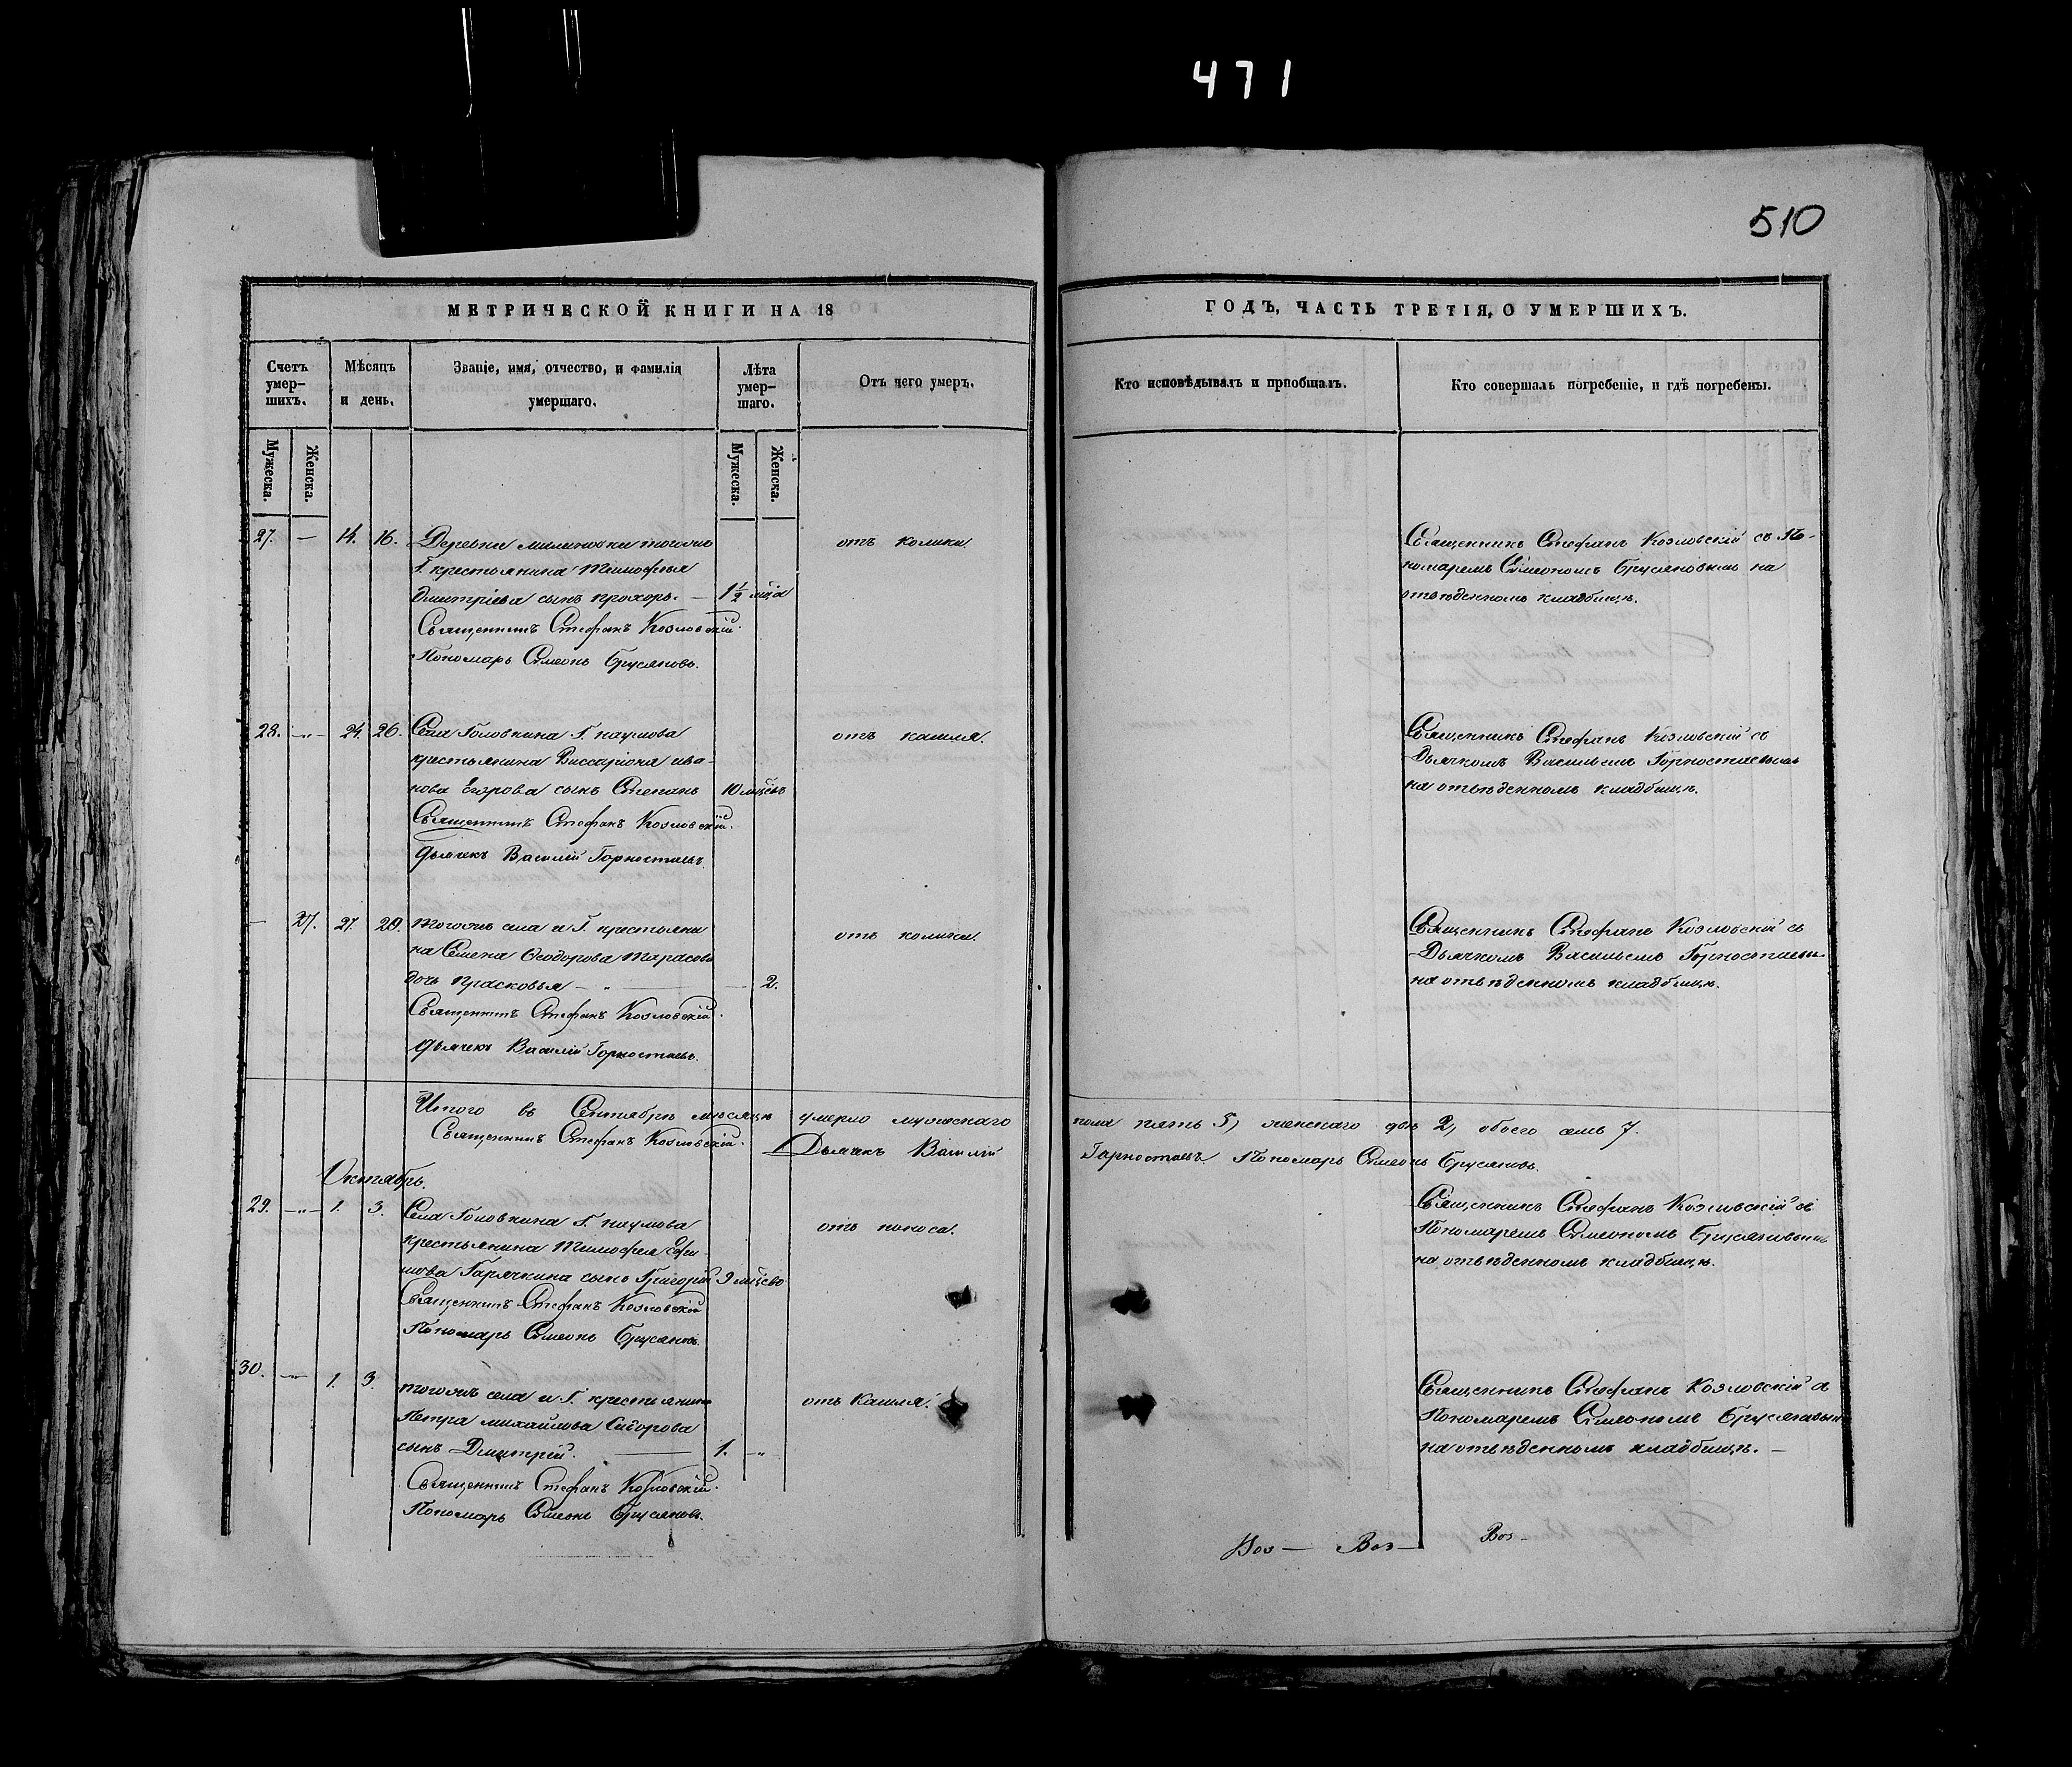 471
510
МЕТРИЧЕСКОЙ КНИГИ НА 18
ГОДЪ, ЧАСТЬ ТРЕТІЯ, О УМЕРШИХЪ.
Счетъ умер-шихъ.
Мѣсяцъ и день.
Званіе, имя, отчество, и фамилія умершаго.
Лѣта умер-шаго.
Отъ чего умеръ.
Кто исповѣдывалъ и пріобщалъ.
Кто совершалъ погребеніе, и гдѣ погребены.
Мужеска.
Женска.
Мужеска.
Женска.
27. — 14. 16. Деревни Малиновки тогоже
Г. крестьянина Тимофея
Дмитріева сынъ Прохоръ. — 1½ мца
отъ колики.
Священникъ Стефанъ Козловскій.
Пономарь Симеонъ Брусяновъ.
Священникъ Стефанъ Козловскій съ По-
номаремъ Симеономъ Брусяновымъ на
отведенномъ кладбищѣ.
28. —„— 24. 26. Села Головкина Г. Наумова
крестьянина Виссаріона Ива-
нова Егорова сынъ Степанъ 10 мцевъ
отъ кашля.
Священникъ Стефанъ Козловскій.
Дьячекъ Василій Горностаевъ.
Священникъ Стефанъ Козловскій съ
Дьячкомъ Васильемъ Горностаевымъ
на отведенномъ кладбищѣ.
— 27. 27. 29. Тогоже села и Г. крестьяни
на Семена Феодорова Тарасова
дочь Прасковья — „ — — 2.
отъ колики.
Священникъ Стефанъ Козловскій.
Дьячекъ Василій Горностаевъ.
Священникъ Стефанъ Козловскій съ
Дьячкомъ Васильемъ Горностаевы
на отведенномъ кладбищѣ.
Итого въ Сентябрѣ мѣсяцѣ умерло мужескаго пола пять 5, женскаго двѣ 2, обоего семь 7.
Священникъ Стефанъ Козловскій. Дьячекъ Василій Горностаевъ. Пономарь Симеонъ Брусяновъ.
Октябрь.
29. —„— 1. 3. Села Головкина Г. Наумова
крестьянина Тимофея Ефи-
мова Гарячкина сынъ Григорій 9 мцевъ
отъ поноса.
Священникъ Стефанъ Козловскій
Пономарь Симеонъ Брусяновъ.
Священникъ Стефанъ Козловскій съ
Пономаремъ Симеономъ Брусяновымъ
на отведенномъ кладбищѣ.
30. —„— 1. 3. Тогоже села и Г. крестьянина
Петра Михайлова Сидорова
сынъ Дмитрій. — 1. —„
отъ Кашля.
Священникъ Стефанъ Козловскій.
Пономарь Симеонъ Брусяновъ.
Священникъ Стефанъ Козловскій съ
Пономаремъ Симеономъ Брусяновым
на отведенномъ кладбищѣ. —